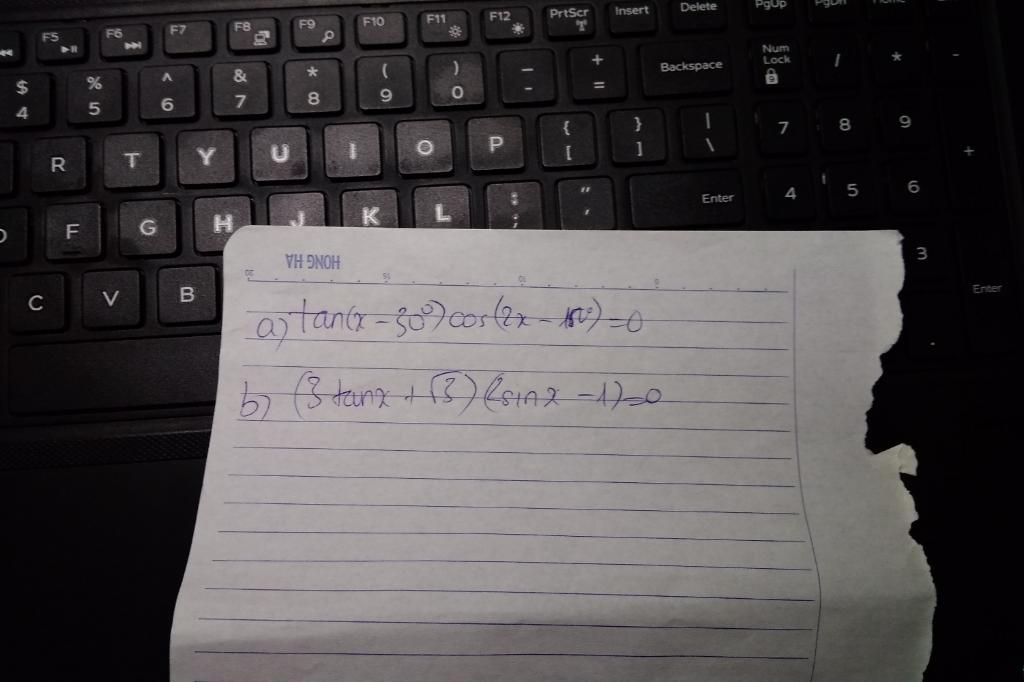 F5 F6 F7 F8 F9 F10 F11 F12 PrtScr Insert Delete PgUp PgDn Home
$ % ^ & * ( ) _ + Backspace Num Lock / * -
4 5 6 7 8 9 0 - =
R T Y U I O P { [ } ] | \ 7 8 9 +
F G H J K L : ; " ' Enter 4 5 6
C V B 3 Enter
HONG HA
20 15 10 5
a) tan(x - 30°) cos(2x - 150°) = 0
b) (3 tanx + √3) (2sinx - 1) = 0